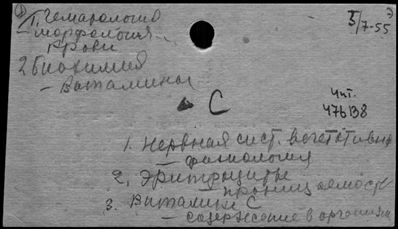 1. Гематология
морфология
крови
5/7-55
Э
2 Биохимия
- Витамины
C
Чит.
476138
1. Нервная сист. вегетативн
- физиология
2. Эритроциты
- проницаемость
3. Витамин С
- содержание в организм